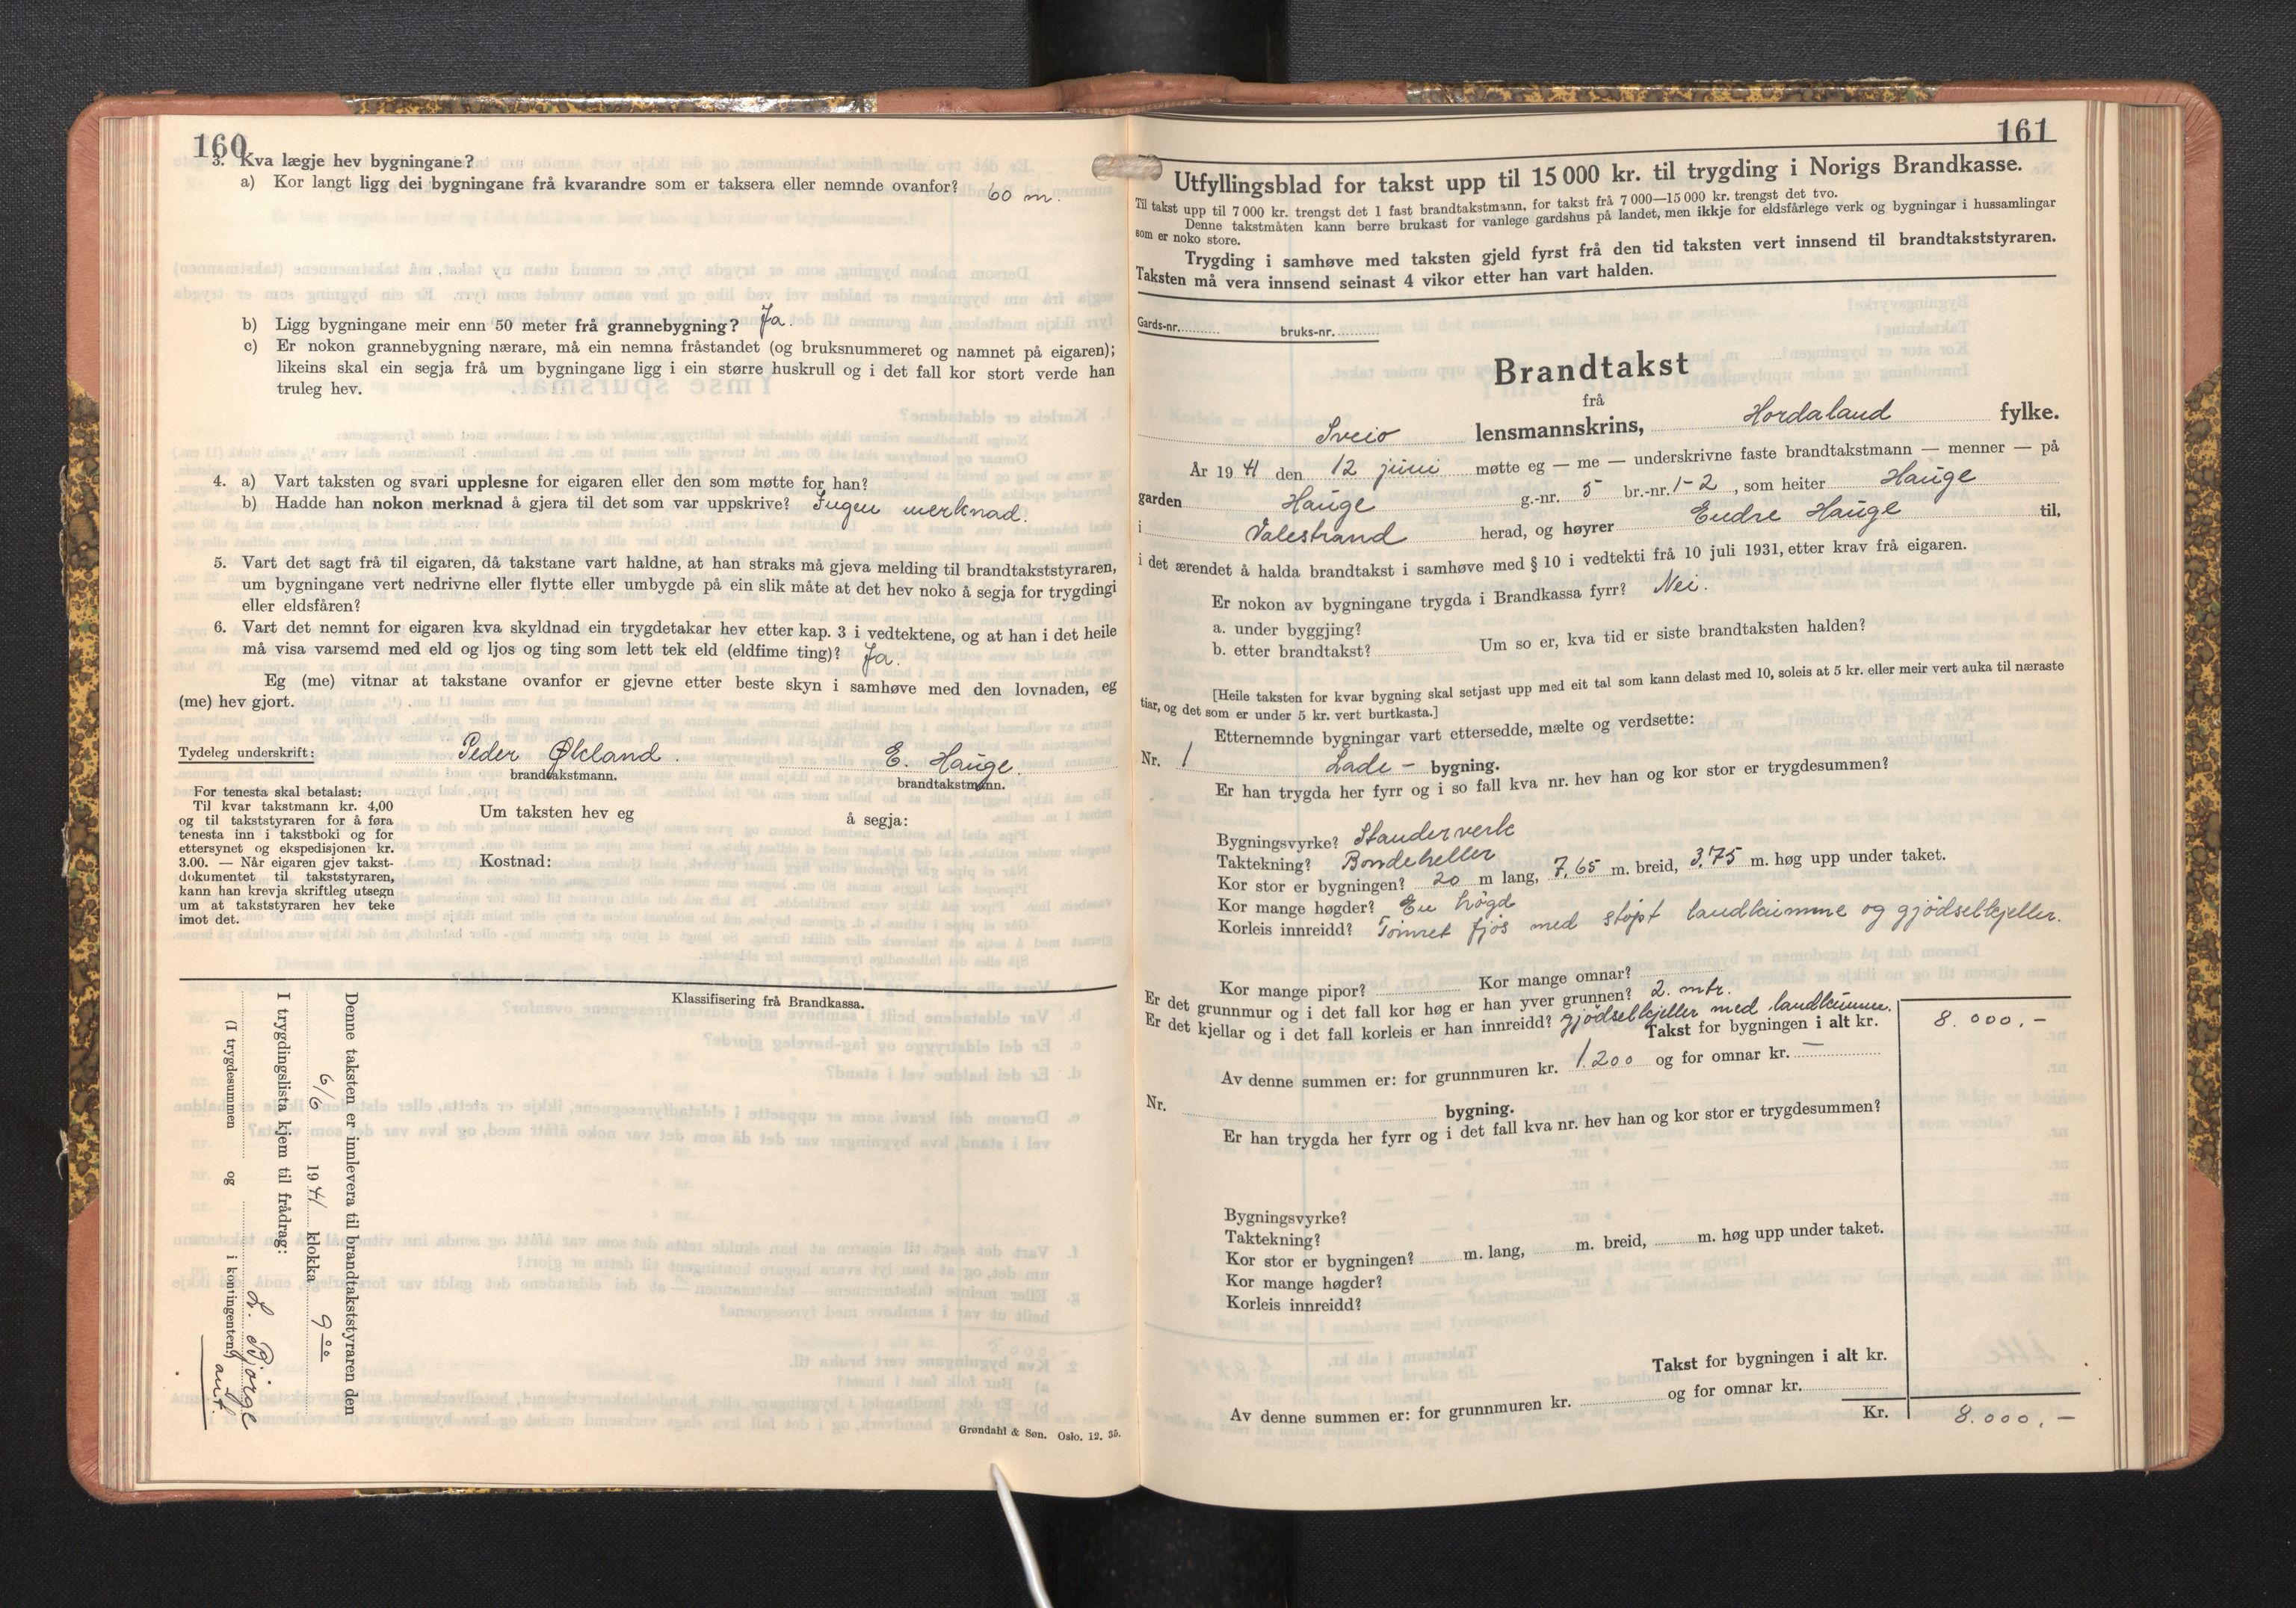 160
3. Kva lægje hev bygningane?
a) Kor langt ligg dei bygningane frå kvarandre som er taksera eller nemnde ovanfor? 60 m.
b) Ligg bygningane meir enn 50 meter frå grannebygning? Ja.
c) Er nokon grannebygning nærare, må ein nemna fråstandet (og bruksnummeret og namnet på eigaren);
likeins skal ein segja frå um bygningane ligg i ein større huskrull og i det fall kor stort verde han
truleg hev.
4. a) Vart taksten og svari upplesne for eigaren eller den som møtte for han?
b) Hadde han nokon merknad å gjera til det som var uppskrive? Ingen merknad.
5. Vart det sagt frå til eigaren, då takstane vart haldne, at han straks må gjeva melding til brandtakststyraren,
um bygningane vert nedrivne eller flytte eller umbygde på ein slik måte at det hev noko å segja for trygdingi
eller eldsfåren?
6. Vart det nemnt for eigaren kva skyldnad ein trygdetakar hev etter kap. 3 i vedtektene, og at han i det heile
må visa varsemd med eld og ljos og ting som lett tek eld (eldfime ting)? Ja.
Eg (me) vitnar at takstane ovanfor er gjevne etter beste skyn i samhøve med den lovnaden, eg
(me) hev gjort.
Tydeleg underskrift: Peder Økland. E. Hauge.
brandtakstmann. brandtakstmann.
For tenesta skal betalast:
Til kvar takstmann kr. 4,00
og til takststyraren for å føra
tenesta inn i takstboki og for
ettersynet og ekspedisjonen kr.
3.00. — Når eigaren gjev takst-
dokumentet til takststyraren,
kann han krevja skriftleg utsegn
um at takststyraren hev teke
imot det.
Um taksten hev eg å segja:
Kostnad:
Klassifisering frå Brandkassa.
Denne taksten er innlevera til brandtakststyraren den
6/6 1941 klokka 9 00
I trygdingslista kjem til frådrag:
L. Bjørge
(I trygdesummen og i kontingenten)
Grøndahl & Søn. Oslo. 12. 35.
161
Utfyllingsblad for takst upp til 15 000 kr. til trygding i Norigs Brandkasse.
Til takst upp til 7 000 kr. trengst det 1 fast brandtakstmann, for takst frå 7 000—15 000 kr. trengst det tvo.
Denne takstmåten kann berre brukast for vanlege gardshus på landet, men ikkje for eldsfårlege verk og bygningar i hussamlingar
som er noko store.
Trygding i samhøve med taksten gjeld fyrst frå den tid taksten vert innsend til brandtakststyraren.
Taksten må vera innsend seinast 4 vikor etter han vart halden.
Gards-nr. bruks-nr.
Brandtakst
frå
Sveio lensmannskrins, Hordaland fylke.
År 1941 den 12 juni møtte eg — me — underskrivne faste brandtakstmann — menner — på
garden Hauge g.-nr. 5 br.-nr. 1-2, som heiter Hauge
i Valestrand herad, og høyrer Endre Hauge til,
i det ærendet å halda brandtakst i samhøve med § 10 i vedtekti frå 10 juli 1931, etter krav frå eigaren.
Er nokon av bygningane trygda i Brandkassa fyrr? Nei.
a. under byggjing?
b. etter brandtakst? Um so er, kva tid er siste brandtaksten halden?
[Heile taksten for kvar bygning skal setjast upp med eit tal som kann delast med 10, soleis at 5 kr. eller meir vert auka til næraste
tiar, og det som er under 5 kr. vert burtkasta.]
Etternemnde bygningar vart ettersedde, mælte og verdsette:
Nr. 1 Lade- bygning.
Er han trygda her fyrr og i so fall kva nr. hev han og kor stor er trygdesummen?
Bygningsvyrke? Standerverk
Taktekning? Bondeheller
Kor stor er bygningen? 20 m lang, 7,65 m. breid, 3,75 m. høg upp under taket.
Kor mange høgder? En høgd
Korleis innreidd? Tømret fjøs med støpt landkumme og gjødselkjeller.
Kor mange pipor? Kor mange omnar?
Er det grunnmur og i det fall kor høg er han yver grunnen? 2. mtr.
Er det kjellar og i det fall korleis er han innreidd? gjødselkjeller med landkumme.
Takst for bygningen i alt kr. 8.000,-
Av denne summen er: for grunnmuren kr. 1.200 og for omnar kr. —
Nr. bygning.
Er han trygda her fyrr og i det fall kva nr. hev han og kor stor er trygdesummen?
Bygningsvyrke?
Taktekning?
Kor stor er bygningen? m. lang, m. breid, m. høg upp under taket.
Kor mange høgder?
Korleis innreidd?
Takst for bygningen i alt kr.
Av denne summen er: for grunnmuren kr. og for omnar kr.
Kr. 8.000,-